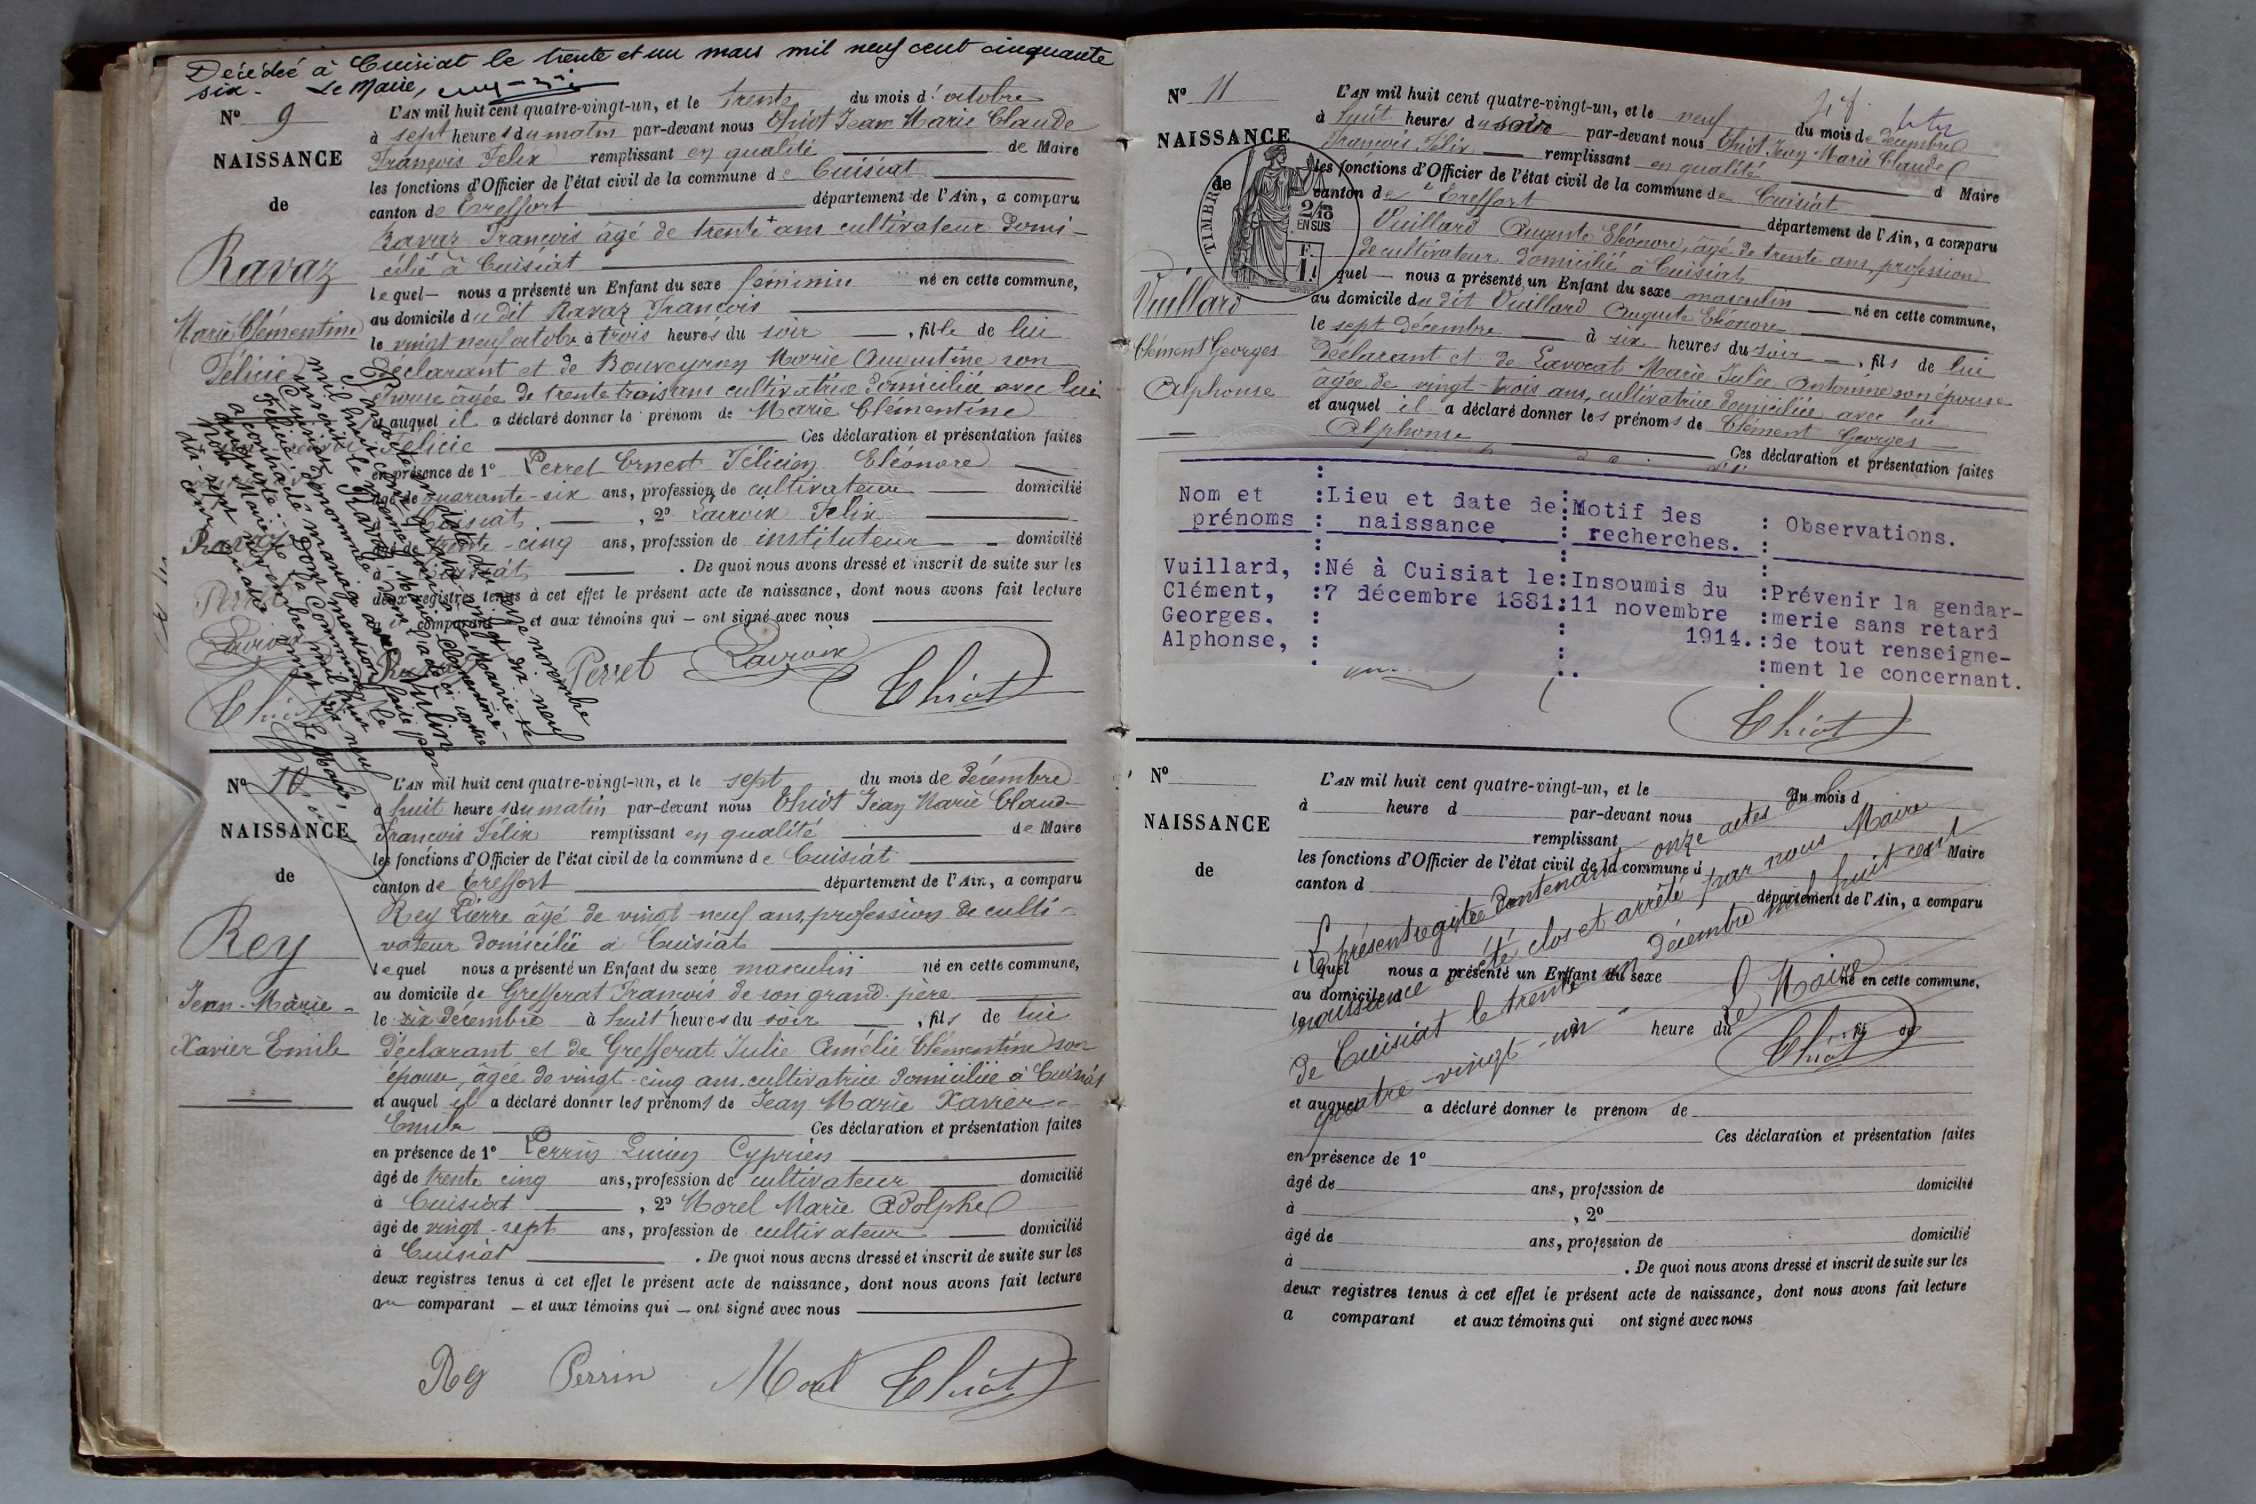 Décédée à Cuisiat le trente et un mars mil neuf cent cinquante
six. Le Maire,
N° 9
NAISSANCE
de
Ravaz
Marie Clémentine
Félicie
L'AN mil huit cent quatre-vingt-un, et le trente du mois d'octobre
à sept heures du matin par-devant nous Chiot Jean Marie Claude
François Félix remplissant en qualité de Maire
les fonctions d'Officier de l'état civil de la commune de Cuisiat
canton de Treffort département de l'Ain, a comparu
Ravaz François âgé de trente ans cultivateur domi-
cilié à Cuisiat
lequel — nous a présenté un Enfant du sexe féminin né en cette commune,
au domicile du dit Ravaz François
le vingt neuf octobre à trois heures du soir, fille de lui
déclarant et de Bouveyron Marie Augustine son
épouse âgée de trente trois ans cultivatrice domiciliée avec lui
et auquel il a déclaré donner le prénom de Marie Clémentine
Félicie Ces déclaration et présentation faites
en présence de 1° Perret Ernest Félicien Eléonore
âgé de quarante-six ans, profession de cultivateur domicilié
à Cuisiat, 2° Lacroix Félix
âgé de trente-cinq ans, profession de instituteur domicilié
à Cuisiat. De quoi nous avons dressé et inscrit de suite sur les
deux registres tenus à cet effet le présent acte de naissance, dont nous avons fait lecture
au comparant et aux témoins qui — ont signé avec nous
Ravaz Perret Lacroix Chiot
N° 10
NAISSANCE
de
Rey
Jean-Marie-
Xavier Emile
L'AN mil huit cent quatre-vingt-un, et le sept du mois de décembre
à huit heures du matin par-devant nous Chiot Jean Marie Claude
François Félix remplissant en qualité de Maire
les fonctions d'Officier de l'état civil de la commune de Cuisiat
canton de Treffort département de l'Ain, a comparu
Rey Pierre âgé de vingt-neuf ans, profession de culti-
vateur domicilié à Cuisiat
lequel nous a présenté un Enfant du sexe masculin né en cette commune,
au domicile de Grefferat François de son grand-père
le six décembre à huit heures du soir, fils de lui
déclarant et de Grefferat Julie Amélie Clémentine son
épouse, âgée de vingt-cinq ans, cultivatrice domiciliée à Cuisiat
et auquel il a déclaré donner les prénoms de Jean Marie Xavier
Emile Ces déclaration et présentation faites
en présence de 1° Perrin Lucien Cyprien
âgé de trente cinq ans, profession de cultivateur domicilié
à Cuisiat, 2° Morel Marie Adolphe
âgé de vingt-sept ans, profession de cultivateur domicilié
à Cuisiat. De quoi nous avons dressé et inscrit de suite sur les
deux registres tenus à cet effet le présent acte de naissance, dont nous avons fait lecture
au comparant — et aux témoins qui — ont signé avec nous
Rey Perrin Morel Chiot
N° 11
NAISSANCE
de
TIMBRE
2/10
EN SUS
Vuillard
Clément Georges
Alphonse
L'AN mil huit cent quatre-vingt-un, et le neuf du mois de décembre
à huit heures du soir par-devant nous Chiot Jean Marie Claude
François Félix remplissant en qualité d Maire
les fonctions d'Officier de l'état civil de la commune de Cuisiat
canton de Treffort département de l'Ain, a comparu
Vuillard Auguste Eléonore, âgé de trente ans, profession
de cultivateur domicilié à Cuisiat
quel — nous a présenté un Enfant du sexe masculin né en cette commune,
au domicile du dit Vuillard Auguste Eléonore
le sept décembre à six heures du soir, fils de lui
déclarant et de Lavocat Marie Julie Antonine son épouse
âgée de vingt-trois ans, cultivatrice domiciliée avec lui
et auquel il a déclaré donner les prénoms de Clément Georges
Alphonse Ces déclaration et présentation faites
Nom et prénoms : Lieu et date de naissance : Motif des recherches. : Observations.
Vuillard, :Né à Cuisiat le:Insoumis du :Prévenir la gendar-
Clément, :7 décembre 1881:11 novembre :merie sans retard
Georges, : : 1914.:de tout renseigne-
Alphonse, : : :ment le concernant.
Chiot
N°
NAISSANCE
de
L'AN mil huit cent quatre-vingt-un, et le du mois d
à heure d par-devant nous
remplissant
les fonctions d'Officier de l'état civil de la commune d Maire
canton d département de l'Ain, a comparu
l quel nous a présenté un Enfant du sexe né en cette commune,
au domicile d
le à heure du
et auquel a déclaré donner le prénom de
Ces déclaration et présentation faites
en présence de 1°
âgé de ans, profession de domicilié
à , 2°
âgé de ans, profession de domicilié
à . De quoi nous avons dressé et inscrit de suite sur les
deux registres tenus à cet effet le présent acte de naissance, dont nous avons fait lecture
a comparant et aux témoins qui ont signé avec nous
Le présent registre contenant onze actes de
naissance a été clos et arrêté par nous Maire
de Cuisiat le trente un décembre mil huit cent
quatre vingt-un
Le Maire
Chiot